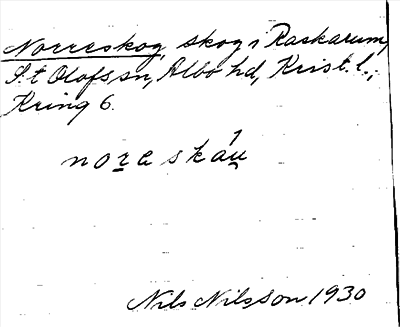 Norreskog, skog i Raskarum,
S:t Olofs sn, Albo hd, Krist. l.;
Kring 6.
noreskáu
Nils Nilsson 1930